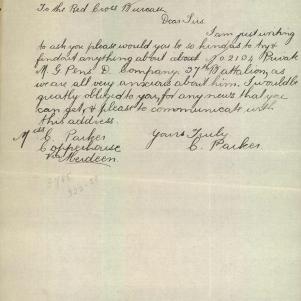 To the Red Cross Bureau
Dear Sirs
I am just writing
to ask you please would you be so kind as to try &
find out anything about about No 2104 Private
M. G. Pens D. Company, 37th Battalion, as
we are all very anxious about him. I would be
greatly obliged to you, for any news that you
can get, & please to communicate with
this address.
Mrs C. Parker Yours Truly
Copperhouse C. Parker.
Via Aberdeen.